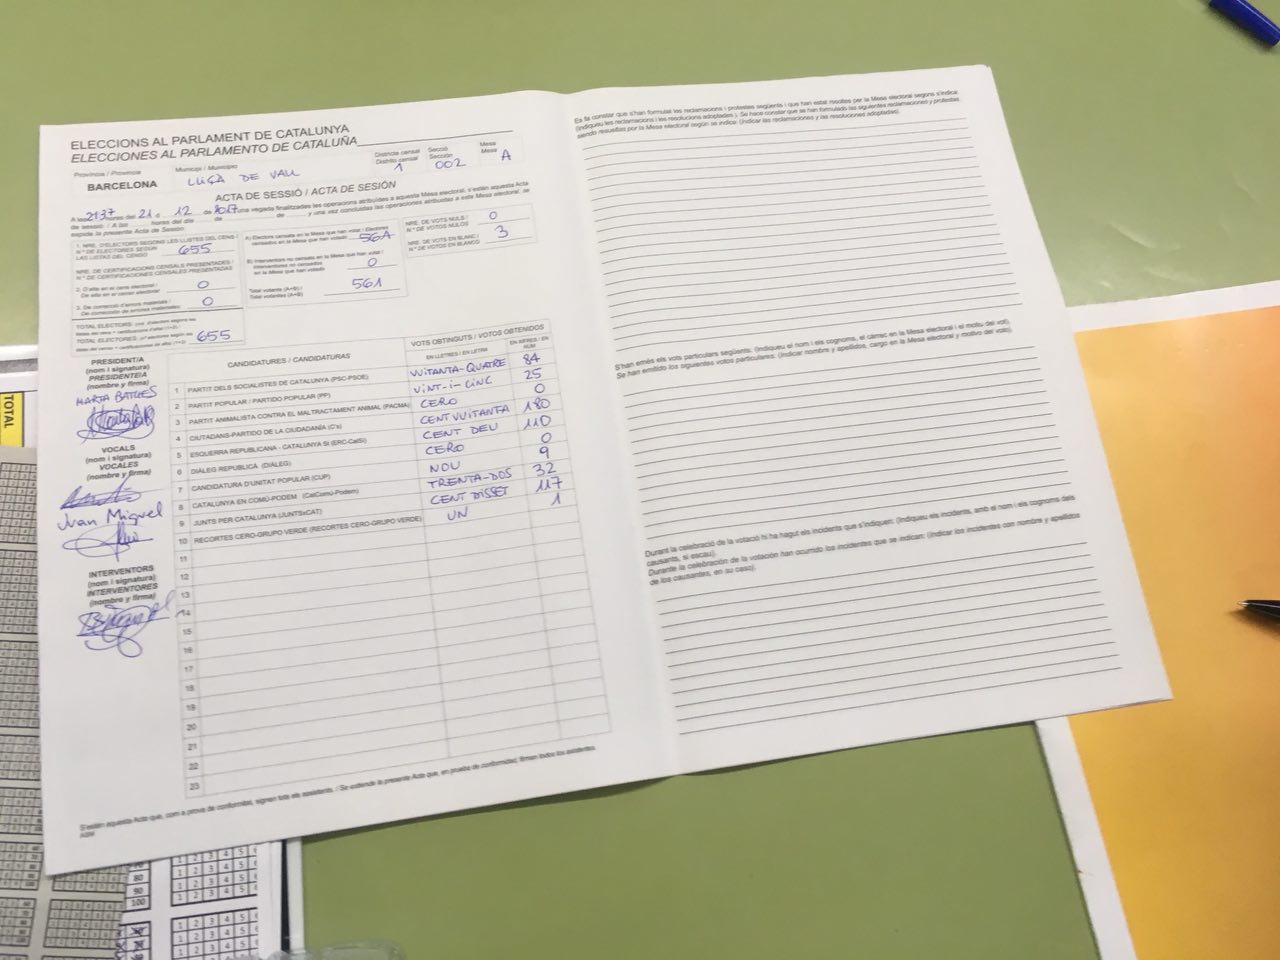 ELECCIONS AL PARLAMENT DE CATALUNYA
ELECCIONES AL PARLAMENTO DE CATALUÑA
Província / Provincia
BARCELONA
Municipi / Municipio
LLIÇA DE VALL
Districte censal
Distrito censal
1
Secció
Sección
002
Mesa
Mesa
A
ACTA DE SESSIÓ / ACTA DE SESIÓN
A les 21:37 hores del 21 d 12 de 2017 una vegada finalitzades les operacions atribuïdes a aquesta Mesa electoral, s'estén aquesta Acta
de sessió / A las horas del día de de y una vez concluidas las operaciones atribuidas a esta Mesa electoral, se
expide la presente Acta de Sesión:
1. NRE. D'ELECTORS SEGONS LES LLISTES DEL CENS /
N.º DE ELECTORES SEGÚN
LAS LISTAS DEL CENSO 655
NRE. DE CERTIFICACIONS CENSALS PRESENTADES /
N.º DE CERTIFICACIONES CENSALES PRESENTADAS
2. D'alta en el cens electoral /
De alta en el censo electoral 0
3. De correcció d'errors materials /
De corrección de errores materiales 0
TOTAL ELECTORS
TOTAL ELECTORES 655
A) Electors censats en la Mesa que han votat / Electores
censados en la Mesa que han votado 561
B) Interventors no censats en la Mesa que han votat /
Interventores no censados
en la Mesa que han votado 0
Total votants (A+B) /
Total votantes (A+B) 561
NRE. DE VOTS NULS /
N.º DE VOTOS NULOS 0
NRE. DE VOTS EN BLANC /
N.º DE VOTOS EN BLANCO 3
PRESIDENT/A
(nom i signatura)
PRESIDENTE/A
(nombre y firma)
MARTA BATLLES
VOCALS
(nom i signatura)
VOCALES
(nombre y firma)
Juan Miguel
INTERVENTORS
(nom i signatura)
INTERVENTORES
(nombre y firma)
CANDIDATURES / CANDIDATURAS
VOTS OBTINGUTS / VOTOS OBTENIDOS
EN LLETRES / EN LETRA
EN XIFRES / EN NÚM
1 PARTIT DELS SOCIALISTES DE CATALUNYA (PSC-PSOE) VUITANTA-QUATRE 84
2 PARTIT POPULAR / PARTIDO POPULAR (PP) VINT-I-CINC 25
3 PARTIT ANIMALISTA CONTRA EL MALTRACTAMENT ANIMAL (PACMA) CERO 0
4 CIUTADANS-PARTIDO DE LA CIUDADANÍA (C's) CENT VUITANTA 180
5 ESQUERRA REPUBLICANA - CATALUNYA SÍ (ERC-CatSí) CENT DEU 110
6 DIÀLEG REPUBLICÀ (DIÀLEG) CERO 0
7 CANDIDATURA D'UNITAT POPULAR (CUP) NOU 9
8 CATALUNYA EN COMÚ-PODEM (CatComú-Podem) TRENTA-DOS 32
9 JUNTS PER CATALUNYA (JUNTSxCAT) CENT DISSET 117
10 RECORTES CERO-GRUPO VERDE (RECORTES CERO-GRUPO VERDE) UN 1
11
12
13
14
15
16
17
18
19
20
21
22
23
S'estén aquesta Acta que, com a prova de conformitat, signen tots els assistents. / Se extiende la presente Acta que, en prueba de conformidad, firman todos los asistentes.
Es fa constar que s'han formulat les reclamacions i protestes següents i que han estat resoltes per la Mesa electoral segons s'indica:
(indiqueu les reclamacions i les resolucions adoptades). Se hace constar que se han formulado las siguientes reclamaciones y protestas
siendo resueltas por la Mesa electoral según se indica: (Indicar las reclamaciones y las resoluciones adoptadas).
S'han emès els vots particulars següents: (Indiqueu el nom i els cognoms, el càrrec en la Mesa electoral i el motiu del vot).
Se han emitido los siguientes votos particulares: (Indicar nombre y apellidos, cargo en la Mesa electoral y motivo del voto).
Durant la celebració de la votació hi ha hagut els incidents que s'indiquen: (Indiqueu els incidents, amb el nom i els cognoms dels
causants, si escau).
Durante la celebración de la votación han ocurrido los incidentes que se indican: (Indicar los incidentes con nombre y apellidos
de los causantes, en su caso).
TOTAL